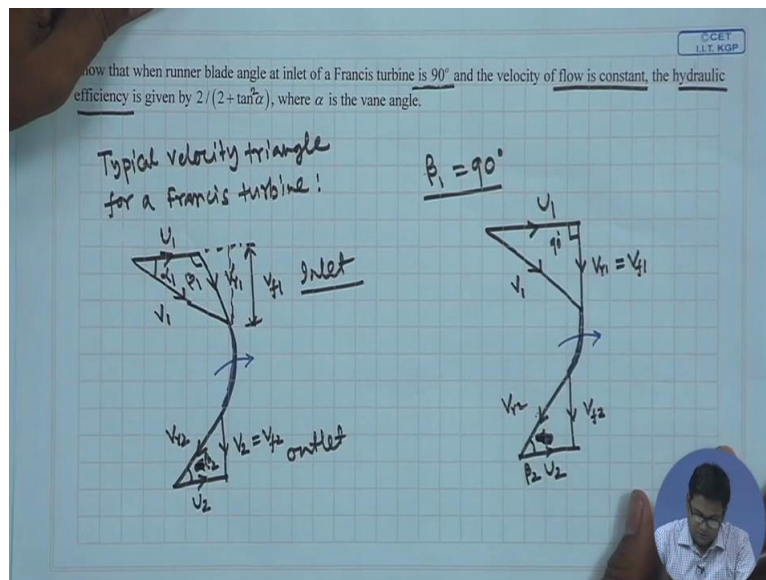 ©CET
I.I.T. KGP
how that when runner blade angle at inlet of a Francis turbine is 90° and the velocity of flow is constant, the hydraulic
efficiency is given by 2/(2+tan²α), where α is the vane angle.
Typical velocity triangle
for a francis turbine:
β₁ = 90°
U₁
α₁ β₁ Vr₁ Vf₁ Inlet
V₁
U₁
90°
Vr₁ = Vf₁
V₁
Vr₂ V₂ = Vf₂ outlet
β₂
U₂
Vr₂ Vf₂
β₂ U₂